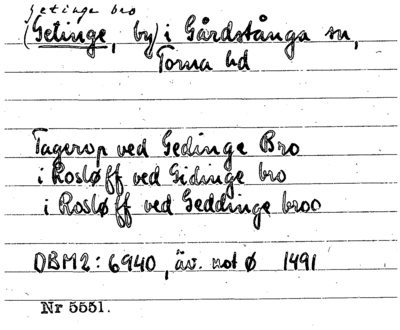 Getinge bro
(Getinge, by) i Gårdstånga sn,
Torna hd
Tagerop ved Gedinge Bro
i Rosløff ved Gidinge bro
i Rosløff ved Geddinge broo
DBM2: 6940, äv. not ø 1491
Nr 5551.